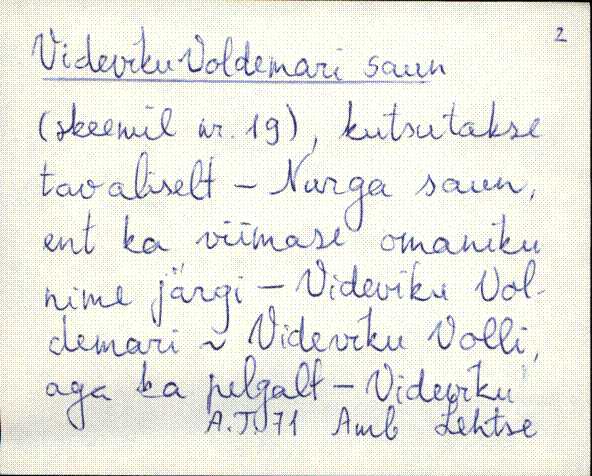 2
Videviku Voldemari saun
(skeemil nr. 19), kutsutakse
tavaliselt – Nurga saun,
ent ka viimase omaniku
nime järgi – Videviku Vol-
demari ~ Videviku Volli,
aga ka pelgalt – Videviku
A.T. 71 Amb Lehtse